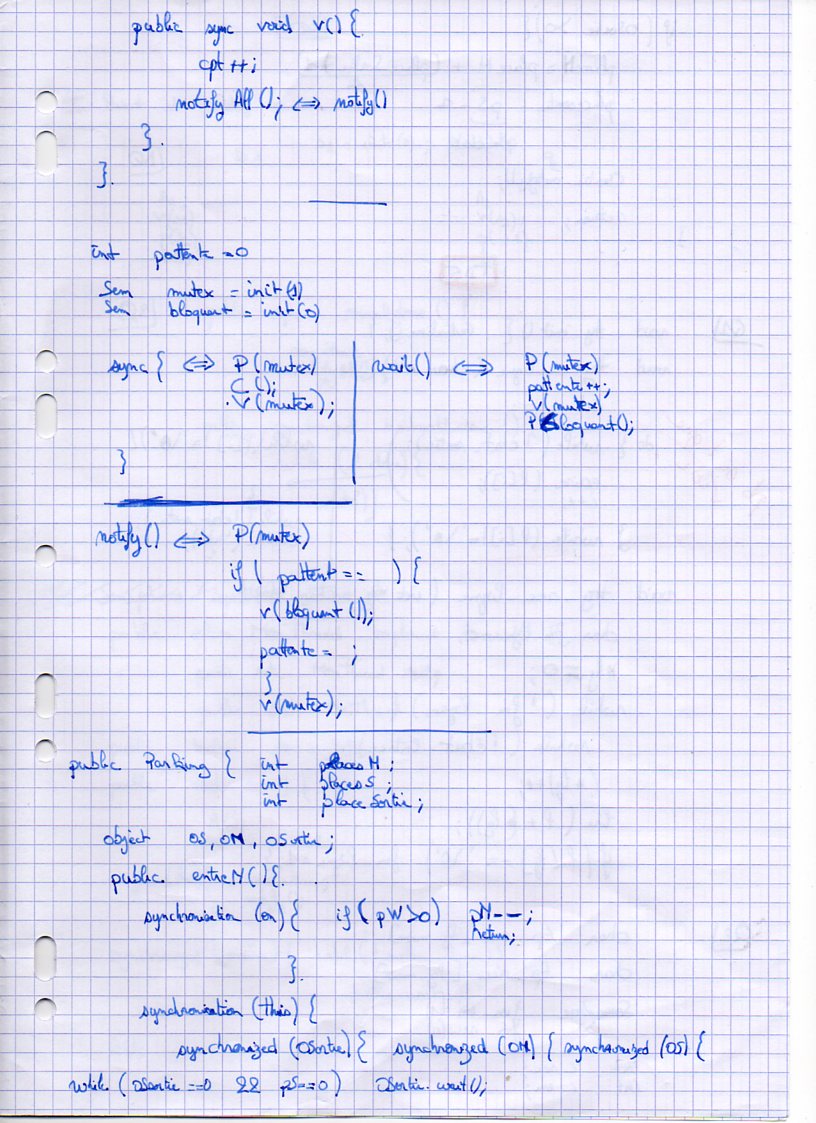 public sync void v() {
cpt ++;
notify All (); <=> notify()
}.
}.
int pattente = 0
Sem mutex = init (1)
Sem bloquant = init (0)
sync { <=> P (mutex)
C ();
V (mutex);
}
wait() <=> P (mutex)
pattente ++;
V (mutex)
P (bloquant ();
notify () <=> P(mutex)
if ( pattent == ) {
v (bloquant ());
pattente = ;
}
v (mutex);
public Parking { int placesM ;
int placesS ;
int place Sortie ;
object OS, OM, OSortie ;
public entreM () {.
synchronisation (on) { if ( pW > 0) pM -- ;
return;
}.
synchronisation (this) {
synchronized (OSortie) { synchronized (OM) { synchronized (OS) {
while (OSortie == 0 && pS == 0) OSortie. wait ();